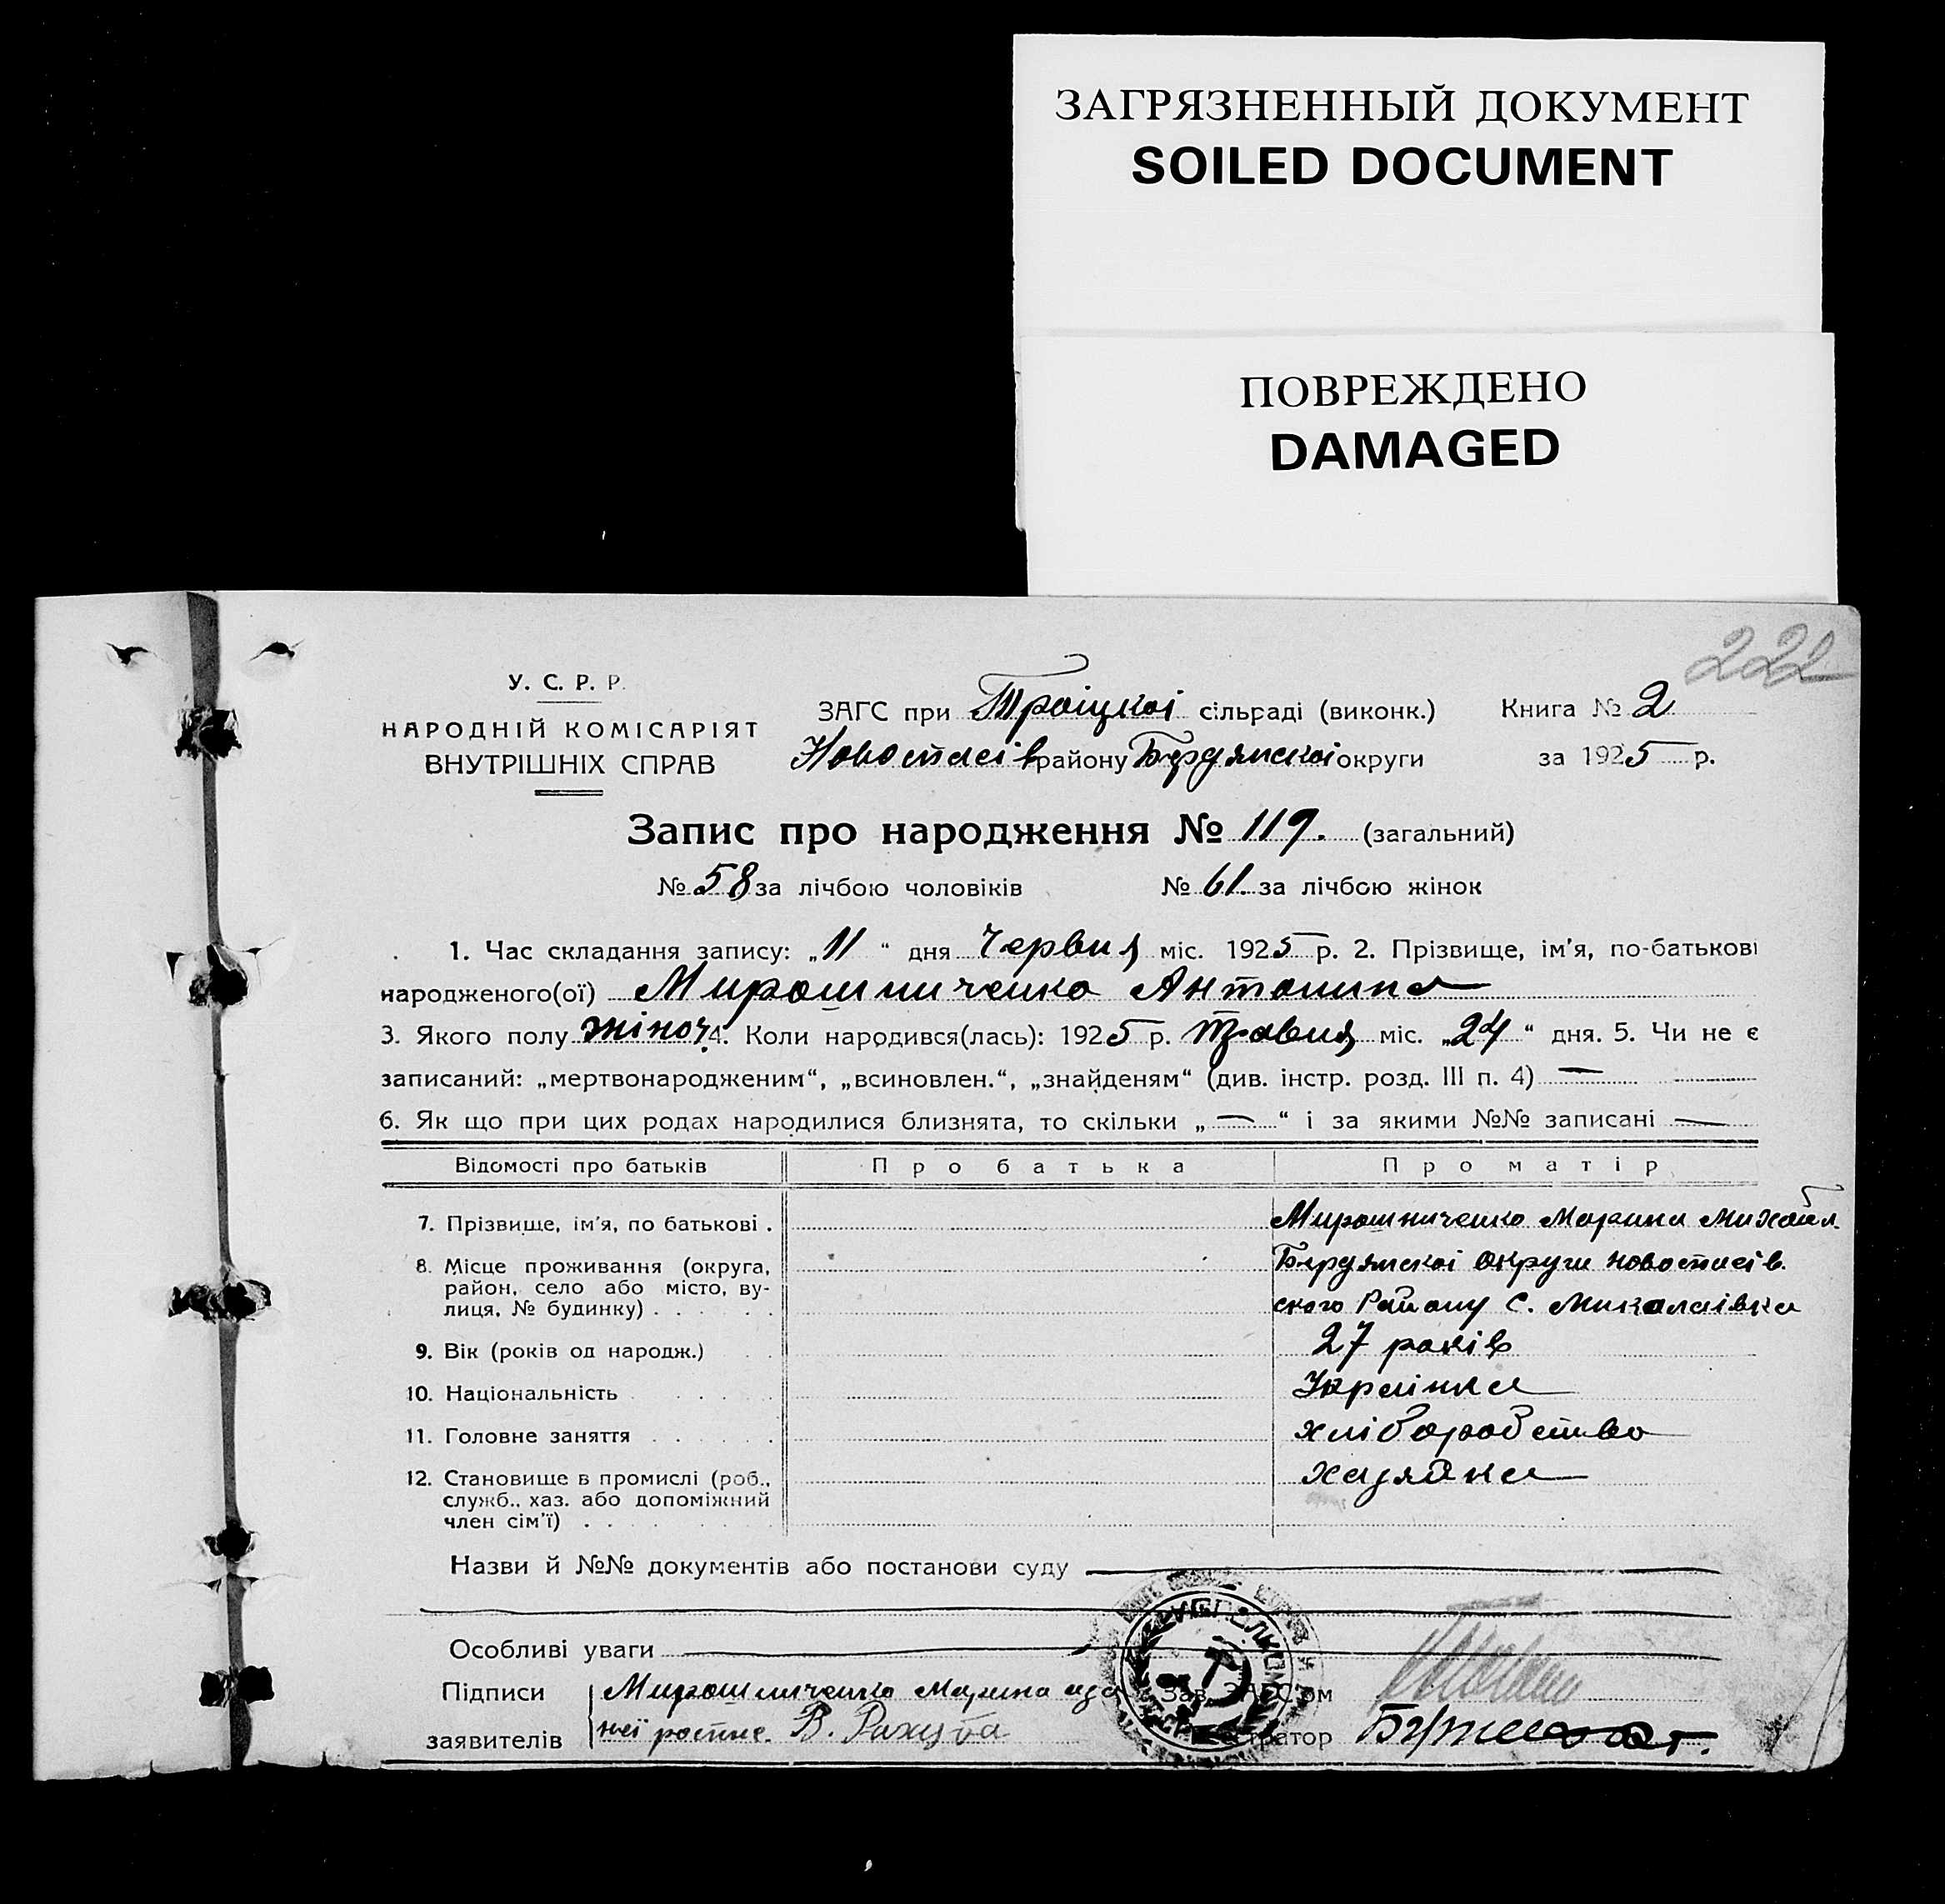 ЗАГРЯЗНЕННЫЙ ДОКУМЕНТ
SOILED DOCUMENT
ПОВРЕЖДЕНО
DAMAGED
222
У. С. Р. Р.
НАРОДНІЙ КОМІСАРІЯТ
ВНУТРІШНІХ СПРАВ
ЗАГС при Троіцкоі сільраді (виконк.) Книга № 2
Новоспасів району Бердянскоі округи за 1925 р.
Запис про народження № 119. (загальний)
№ 58 за лічбою чоловіків № 61. за лічбою жінок
1. Час складання запису: „11“ дня Червня міс. 1925 р. 2. Прізвище, ім'я, по-батькові
народженого(ої) Мирошниченко Антонина
3. Якого полу жіноч. 4. Коли народився(лась): 1925 р. травня міс. „24“ дня. 5. Чи не є
записаний: „мертвонародженим“, „всиновлен.“, „знайденям“ (див. інстр. розд. III п. 4) —
6. Як що при цих родах народилися близнята, то скільки „—“ і за якими №№ записані —
Відомості про батьків Про батька Про матір
7. Прізвище, ім'я, по батькові . Мирошниченко Марина Михайл.
8. Місце проживання (округа, Бердянскоі Округи Новоспасів.
район, село або місто, ву-
лиця, № будинку) . . . . . ского Району С. Миколаівка
9. Вік (років од народж.) 27 років
10. Національність Украінка
11. Головне заняття хліборобство
12. Становище в промислі (роб., хазяйка
служб., хаз. або допоміжний
член сім'ї)
Назви й №№ документів або постанови суду
Особливі уваги
Підписи Мирошниченко Марина а за Зав. ЗАГС'ом
заявителів неі роспис. В.